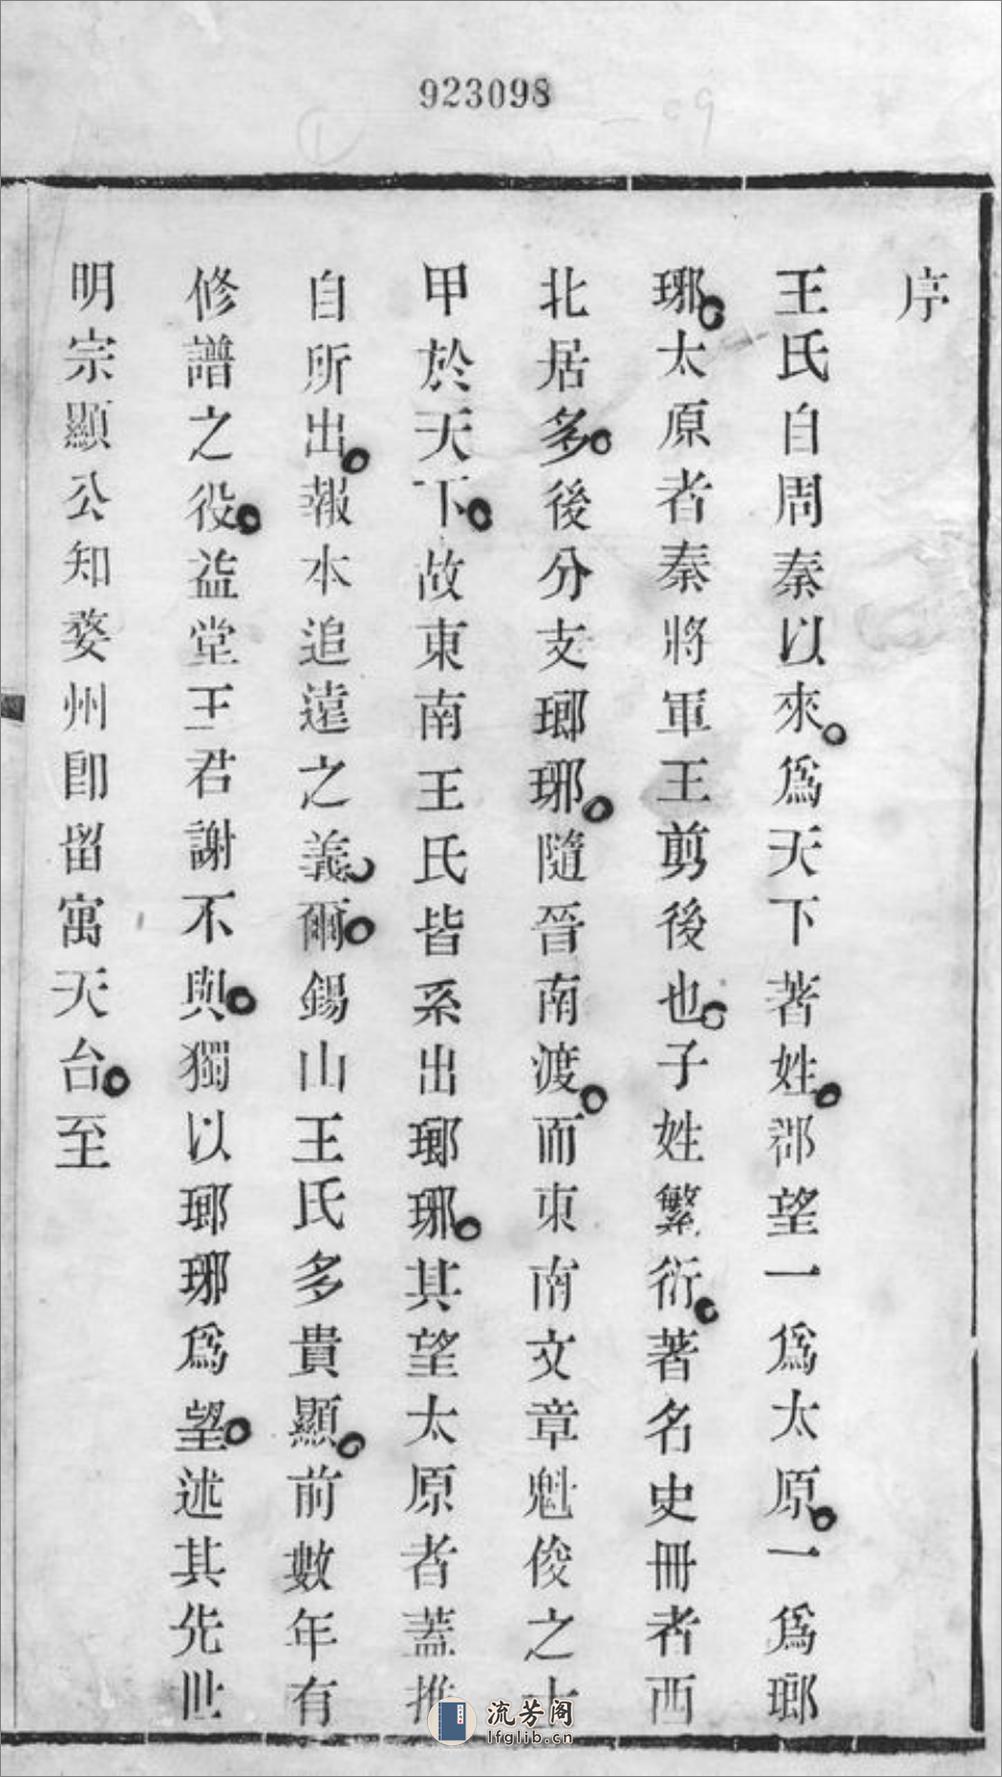 923098
序
王氏自周秦以來爲天下著姓郡望一爲太原一爲瑯
琊太原者秦將軍王剪後也子姓繁衍著名史冊者西
北居多後分支瑯琊隨晉南渡而東南文章魁俊之士
甲於天下故東南王氏皆系出瑯琊其望太原者蓋推
自所出報本追遠之義爾錫山王氏多貴顯前數年有
修譜之役益堂王君謝不與獨以瑯琊爲望述其先世
明宗顯公知婺州卽留寓天台至
流芳阁
lfglib.cn